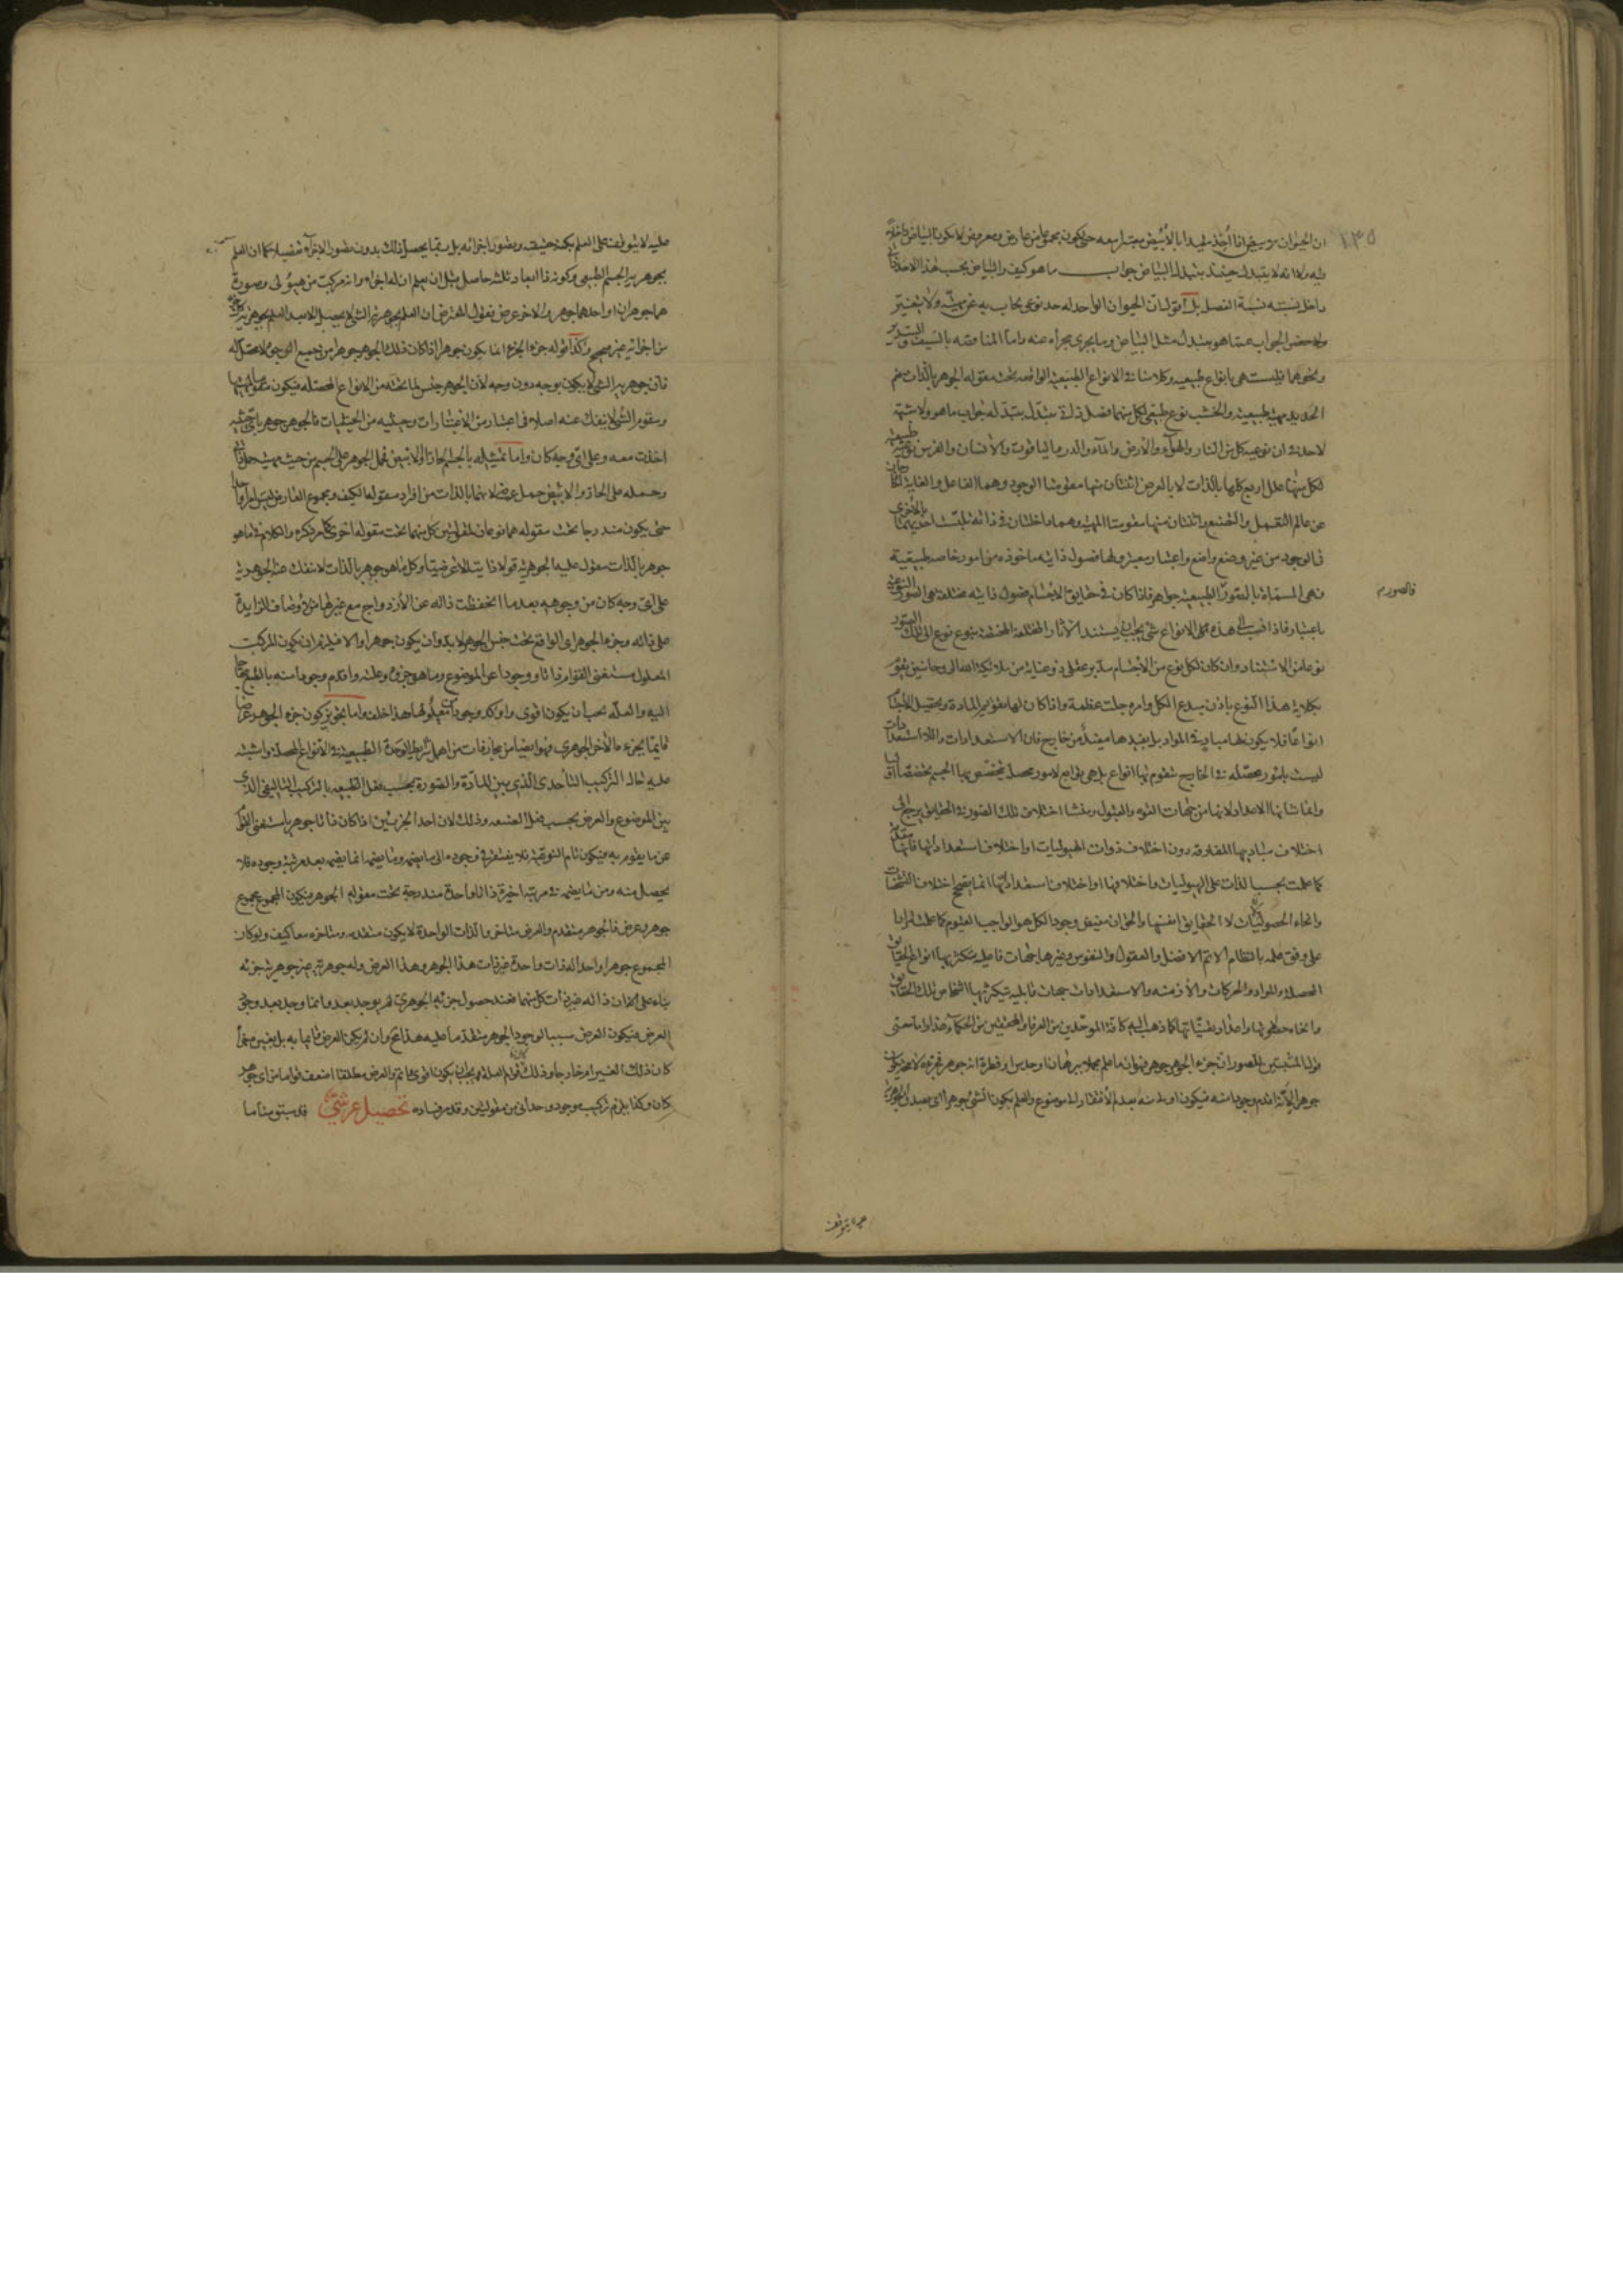 ان الحيوان الابيض اذا اخذ مقيدا بالابيض معتبرا معه حتى يكون مجموع عارض ومعروض لا يكون البياض داخلا
فيه ولا انه لا يتبدل حينئذ بتبدل البياض جواب ما هو كيف والبياض بحسب هذا الاخذ
داخل نسبته نسبة الفصل بل اقول ان الحيوان الواحد له حد نوعى يجاب به عن مهيته ولا يتغير
ولا حصر الجواب عما هو بتبدل مثل البياض وما يجرى مجراه عنه واما المناقضة بالسيف والسرير
ونحوهما فليست هى بانواع طبيعيه وكلامنا فى الانواع الطبيعيه الواقعه تحت مقوله الجوهر بالذات نعم
الحديد مهيه طبيعيه والخشب نوع طبيعى لكل منهما فصل ذاتى يتبدل بتبدله جواب ما هو ولا شبهة
لاحد فى ان نوعيه كل من النار والهواء والارض والماء والدر والياقوت والانسان والفرس نوعيه طبيعيه
لكل منها علل اربع كلها بالذات لا بالعرض اثنتان منها مقومتا الوجود وهما الفاعل والغاية
عن عالم التعمل والتصنع واثنتان منها مقومتا المهيه وهما داخلتان فى ذاته تلبست احديهما بالاخرى
فى الوجود من غير وضع واضع واعتبار معتبر ولها فصول ذاتيه ماخوذه من امور خاصه طبيعية
فهى المسماة بالصور الطبيعيه جواهر فاذا كان فى حقايق الاجسام فصول ذاتيه مختلفه هى الصور النوعيه
باعتبار فاذا نسب الى هذه الانواع شئ يجب ان يستند الاثار المختلفة المختصه بنوع نوع الى تلك الصور
نوعا من الاستناد وان كان لكل نوع من الاجسام مدبر عقلى ذو عناية من ملائكة الله الروحانيين يقوم
بكلاية هذا النوع باذن مبدع الكل وامره جلت عظمته واذا كان لها تقويم المادة وتحصيل الاجسام
انواعا فلا يكون لها مبادى فى المواد بل يفيدها مبدأ من خارج فان الاستعدادات واللا استعدادات
ليست بامور محصله فى الخارج يتقوم بها انواع بل هى توابع لامور محصله يتخصص بها الجسم تخصصا
وانما شانها الاعداد لانها من جهات القوه والقبول ومنشا اختلاف تلك الصور فى الحقايق يرجع الى
اختلاف مباديها المفارقه دون اختلاف ذوات الهيوليات او اختلاف استعداداتها فانها متقدمة
كما علمت بحسب الذات على الهيوليات واختلافها او اختلاف استعداداتها انما يصحح اختلاف التشخصات
وانحاء الحصولات لا الحقايق انفسها والحق ان مفيض وجود الكل هو الواجب القيوم كما علمت مرارا
على وفق علمه بالنظام الاتم الافضل والعقول والنفوس وغيرها جهات فاعليه يتكثر بها انواع الحقايق
المحصله والمواد والحركات والازمنه والاستعدادات جهات قابليه يتكثر بها اشخاص تلك الحقايق
وانحاء حصولها كما ذهب اليه كافة الموحدين من العرفا والمحققين من الحكماء هذا واما معنى
قول المثبتين للصور ان جزء الجوهر جوهر فهو انه ما علم مجملا ببرهان او حدس او فطرة انه جوهر فجزءه لا محه يكون
جوهرا لانه اقدم وجودا منه فيكون اولى منه بعدم الافتقار الى موضوع والعلم بكون الشئ جوهرا اى بصدق الجوهريه
فالصورم
١٣٥
عليه لا يتوقف
عليه لا يتوقف على العلم بكنه حقيقته وبتصور اجزائه بل ربما يحصل ذلك بدون تصور الاجزاء تفصيلا كما ان العلم
بجوهرية الجسم الطبيعى وكونه ذا ابعاد ثلثه حاصل قبل ان يعلم ان له اجزاء وانه مركب من هيولى وصورة
هما جوهران او احدهما جوهر والاخر عرض فقول المعترض ان العلم بجوهرية الشئ لا يحصل الا بعد العلم بجوهرية كل واحد
من اجزائه غير صحيح وكذا قوله جزء الجزء انما يكون جوهرا اذا كان ذلك الجوهر جوهرا من جميع الوجوه لا محصل له
فان جوهرية الشئ لا يكون بوجه دون وجه لان الجوهر جنس لما تحته من الانواع المحصله فيكون مقوما لها
ومقوم الشئ لا ينفك عنه اصلا فى اعتبار من الاعتبارات وحيثيه من الحيثيات فالجوهر جوهر باى حيثيه
اخذت معه وعلى اى وجه كان واما تمثيله بالجسم الحار او الابيض فحمل الجوهر على الجسم من حيث مهيته حمل ذاتى
وحمله على الحار والابيض حمل عرضى لانهما بالذات من افراد مقوله الكيف ومجموع العارض ليس امرا واحدا
حتى يكون مندرجا تحت مقوله هما نوعان لمقولتين كل منهما تحت مقوله اخرى كما مر ذكره والكلام فى ما هو
جوهر بالذات مقول عليه الجوهريه قولا ذاتيا لا عرضيا وكل ما هو جوهر بالذات لا تنفك عنه الجوهريه
على اى وجه كان من وجوهه بعد ما انحفظت ذاته عن الازدواج مع غيرها من الاوصاف الزايدة
على ذاته وجزء الجوهر اى الواقع تحت جنس الجوهر لا بد وان يكون جوهرا والا فيلزم ان يكون المركب
المعلول مستغنى القوام ذاتا ووجودا عن الموضوع وما هو جزؤه وعلته واقدم وجودا منه بالطبع محتاجا
اليه والعلة يجب ان يكون اقوى واوكد وجودا من معلولها هذا خلف واما تجويز كون جزء الجوهر عرضا
قايما بجزء ما الاخر الجوهرى فهو ايضا من مجازفات من اهمل شرايط الوحدة الطبيعيه فى الانواع المحصله واشتبه
عليه حال التركيب التأحدى الذى بين المادة والصورة بحسب فعل الطبيعه بالتركيب التاليفى الذى
بين الموضوع والعرض بحسب فعل الصنعه وذلك لان احد الجزئين اذا كان ذاتا جوهريا مستغنى القوام
عن ما يقوم به فيكون تام النوعيه فلا يفتقر فى وجوده الى ما يضمه وما يضمه انما يضمه بعد مرتبه وجوده فلا
يحصل منه ومن ما يضمه فى مرتبه اخيرة ذات واحدة مندرجة تحت مقوله الجوهر فيكون المجموع مجموع
جوهر وعرض فالجوهر متقدم والعرض متاخر والذات الواحدة لا يكون متقدمه ومتاخره معا كيف ولو كان
المجموع جوهرا واحدا لذات واحدة غير ذات هذا الجوهر وهذا العرض وله جوهرية غير جوهرية جزئه
بناء على ان ذاته غير ذات كل منهما فعند حصول جزئه الجوهرى لم يوجد بعد وانما وجد بعد وجود
العرض فيكون العرض سببا لوجود الجوهر متقدما عليه هذا مح وان لم يكن العرض قايما به بل بغيره معما
كان ذلك الغير امر خارجا وذلك لان قوام العلة يجب ان يكون اقوى قائم والعرض مطلقا اضعف قواما من اى جوهر
كان وكذا يلزم تركيب موجود وحدانى من مقولتين وقد مر فساده تحصيل عرشى قد سبق منا ما